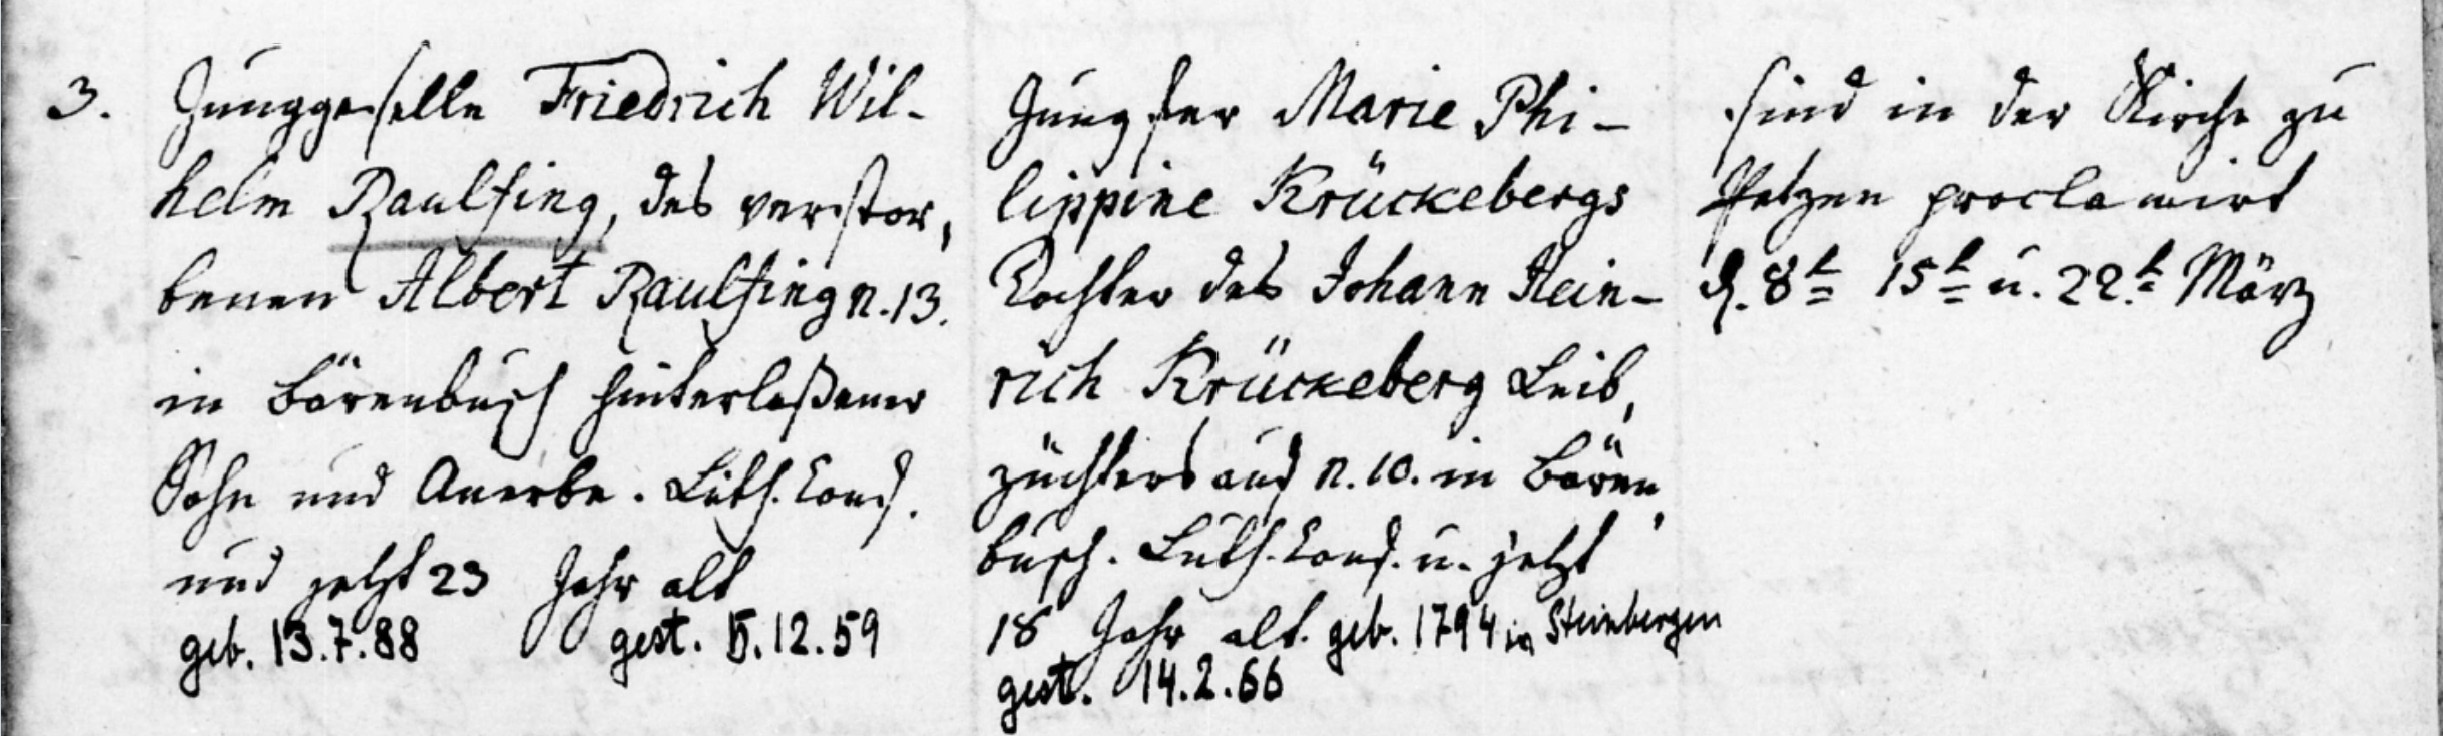 3. Junggeselle Friedrich Wil-
helm Raulfing, des verstor,
benen Albert Raulfing n. 13.
in Bärenbusch hinterlaßener
Sohn und Anerbe. Luth. Conf.
und jetzt 23 Jahr alt
geb. 13.7.88 gest. 5.12.59
Jungfer Marie Phi-
lippine Krückebergs
Tochter des Johann Hein-
rich Krückeberg Leib,
züchters aus n. 10. in Bären,
busch. Luth. Conf. u. jetzt
18 Jahr alt. geb. 1794 in Steinbergen
gest. 14.2.66
sind in der Kirche zu
Petzen proclamirt
d. 8t 15t u. 22.t März